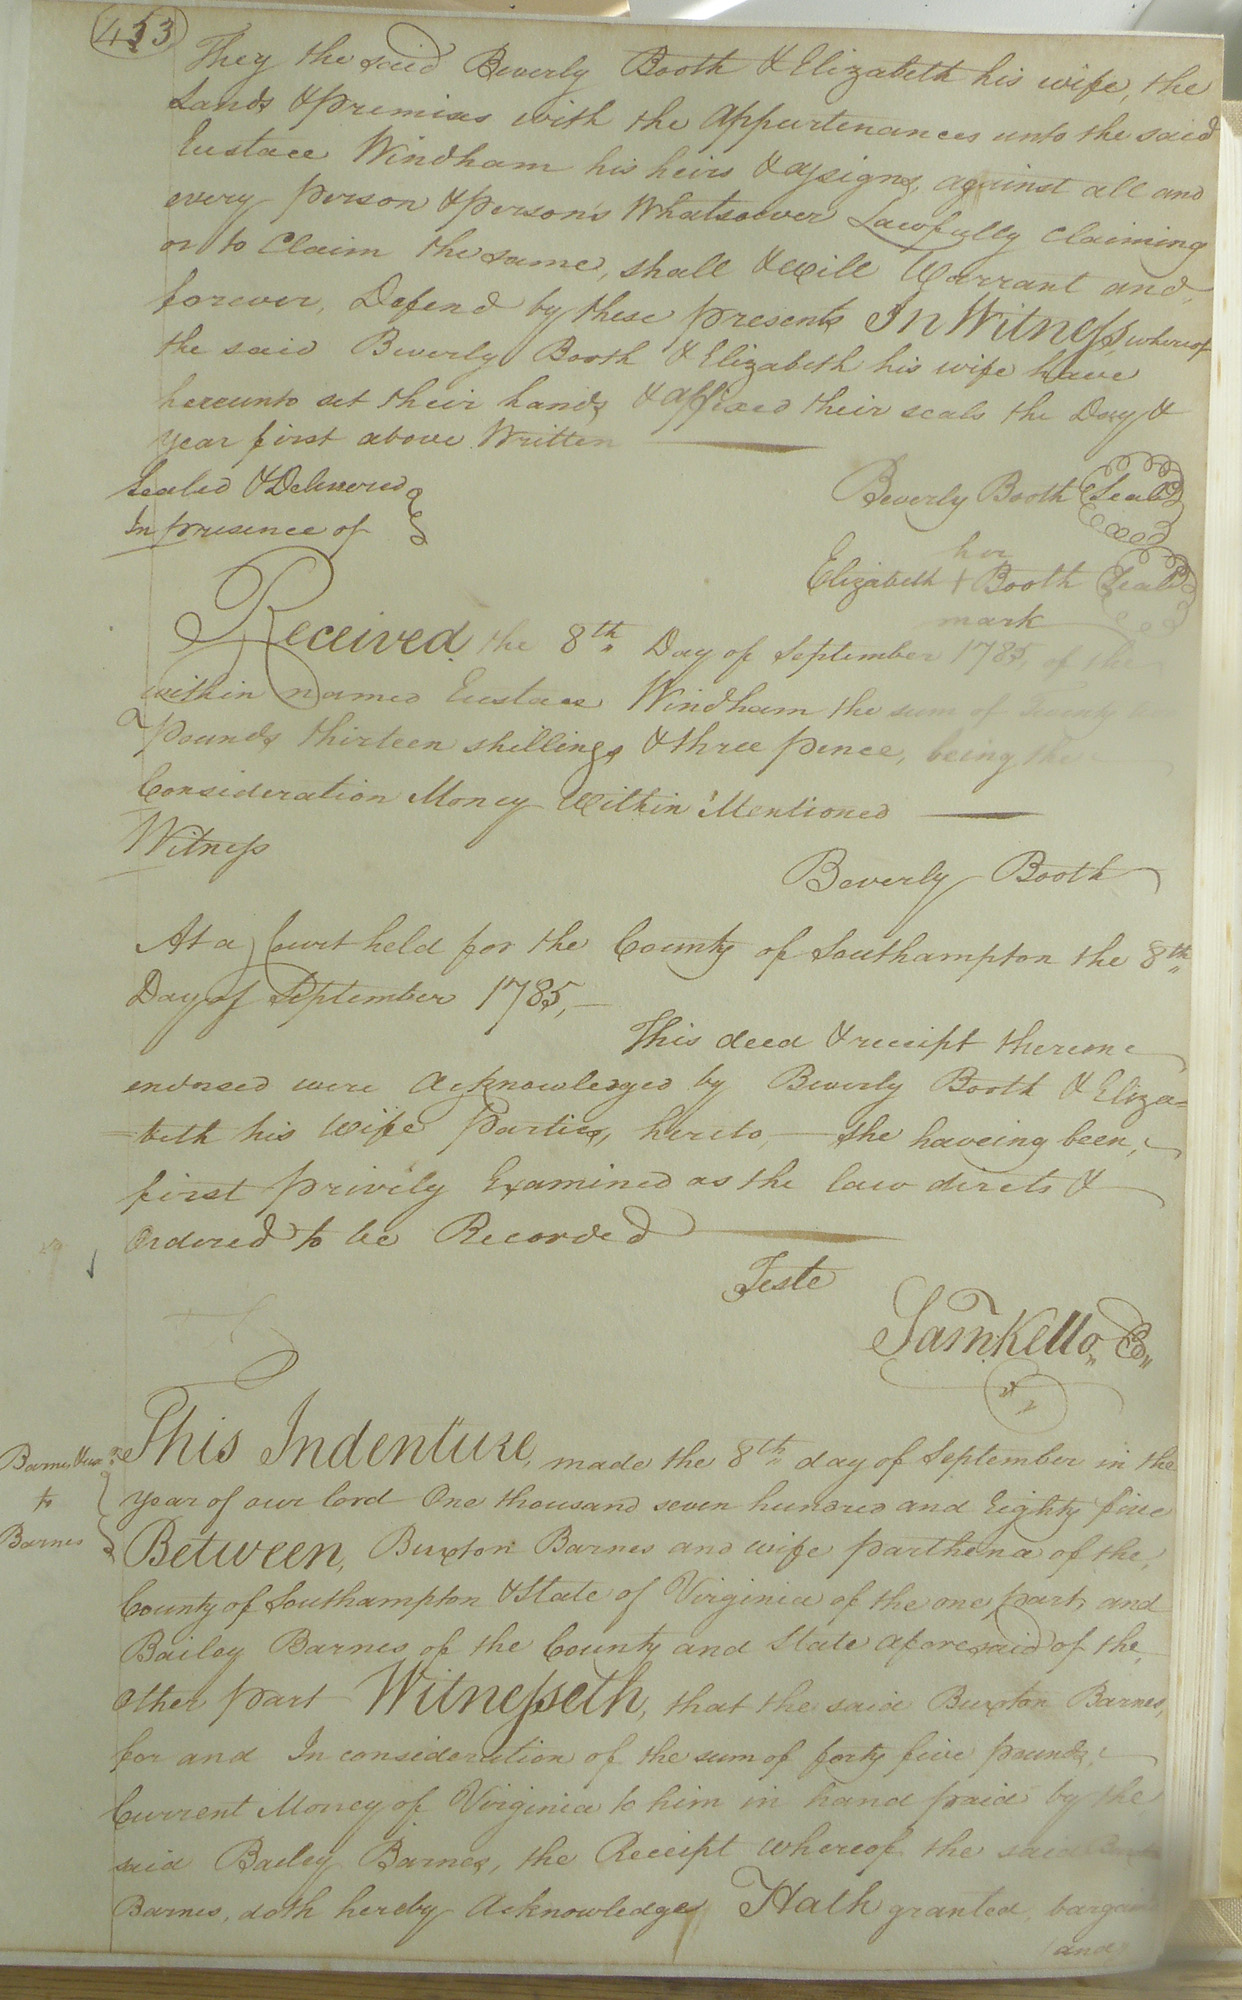 433
They the said Beverly Booth & Elizabeth his wife, the
Lands & premises with the appurtenances unto the said
Eustace Windham his heirs & assigns, against all and
every person & person's Whatsoever Lawfully claiming
or to Claim the same, shall & will Warrant and
forever, Defend by these presents In Witness, whereof
the said Beverly Booth & Elizabeth his wife have
hereunto set their hands & affixed their seals the Day &
year first above Written
Sealed & Delivered
In presence of
Beverly Booth Seal
her
Elizabeth + Booth Seal
mark
Received the 8th Day of September 1785, of the
within named Eustace Windham the sum of twenty
Pounds thirteen shillings & three pence, being the
Consideration Money Within Mentioned
Witness
Beverly Booth
At a Court held for the County of Southampton the 8th
Day of September 1785,
This deed & receipt thereon
endorsed were Acknowledged by Beverly Booth & Eliza=
beth his Wife Parties, hereto, she haveing been,
first privily Examined as the law directs &
Ordered to be Recorded
Teste
Sam. Kello, Co,,
Barnes & ux
to
Barnes
This Indenture, made the 8th day of September in the
year of our lord One thousand seven hundred and Eighty five
Between, Buxton Barnes and wife parthena of the,
County of Southampton & State of Virginia of the one part, and
Bailey Barnes of the County and State aforesaid of the,
other part Witnesseth, that the said Buxton Barnes,
for and In consideration of the sum of forty five pounds,
Current Money of Virginia to him in hand paid by the
said Bailey Barnes, the Receipt whereof the said
Barnes, doth hereby Acknowledge Hath granted, bargain'd
and